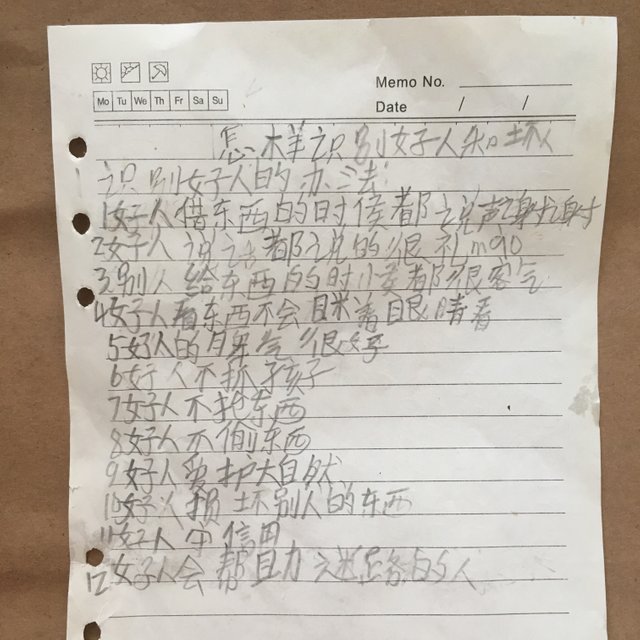 Memo No.
Mo Tu We Th Fr Sa Su
Date / /
怎样识别好人和坏人
识别好人的办法
1好人借东西的时候都说谢谢
2好人说话都说的很礼mao
3别人给东西的时候都很客气
4好人看东西不会眯着眼睛看
5好人的脾气很好
6好人不抓孩子
7好人不抢东西
8好人不偷东西
9好人爱护大自然
10好人损坏别人的东西
11好人守信用
12好人会帮助